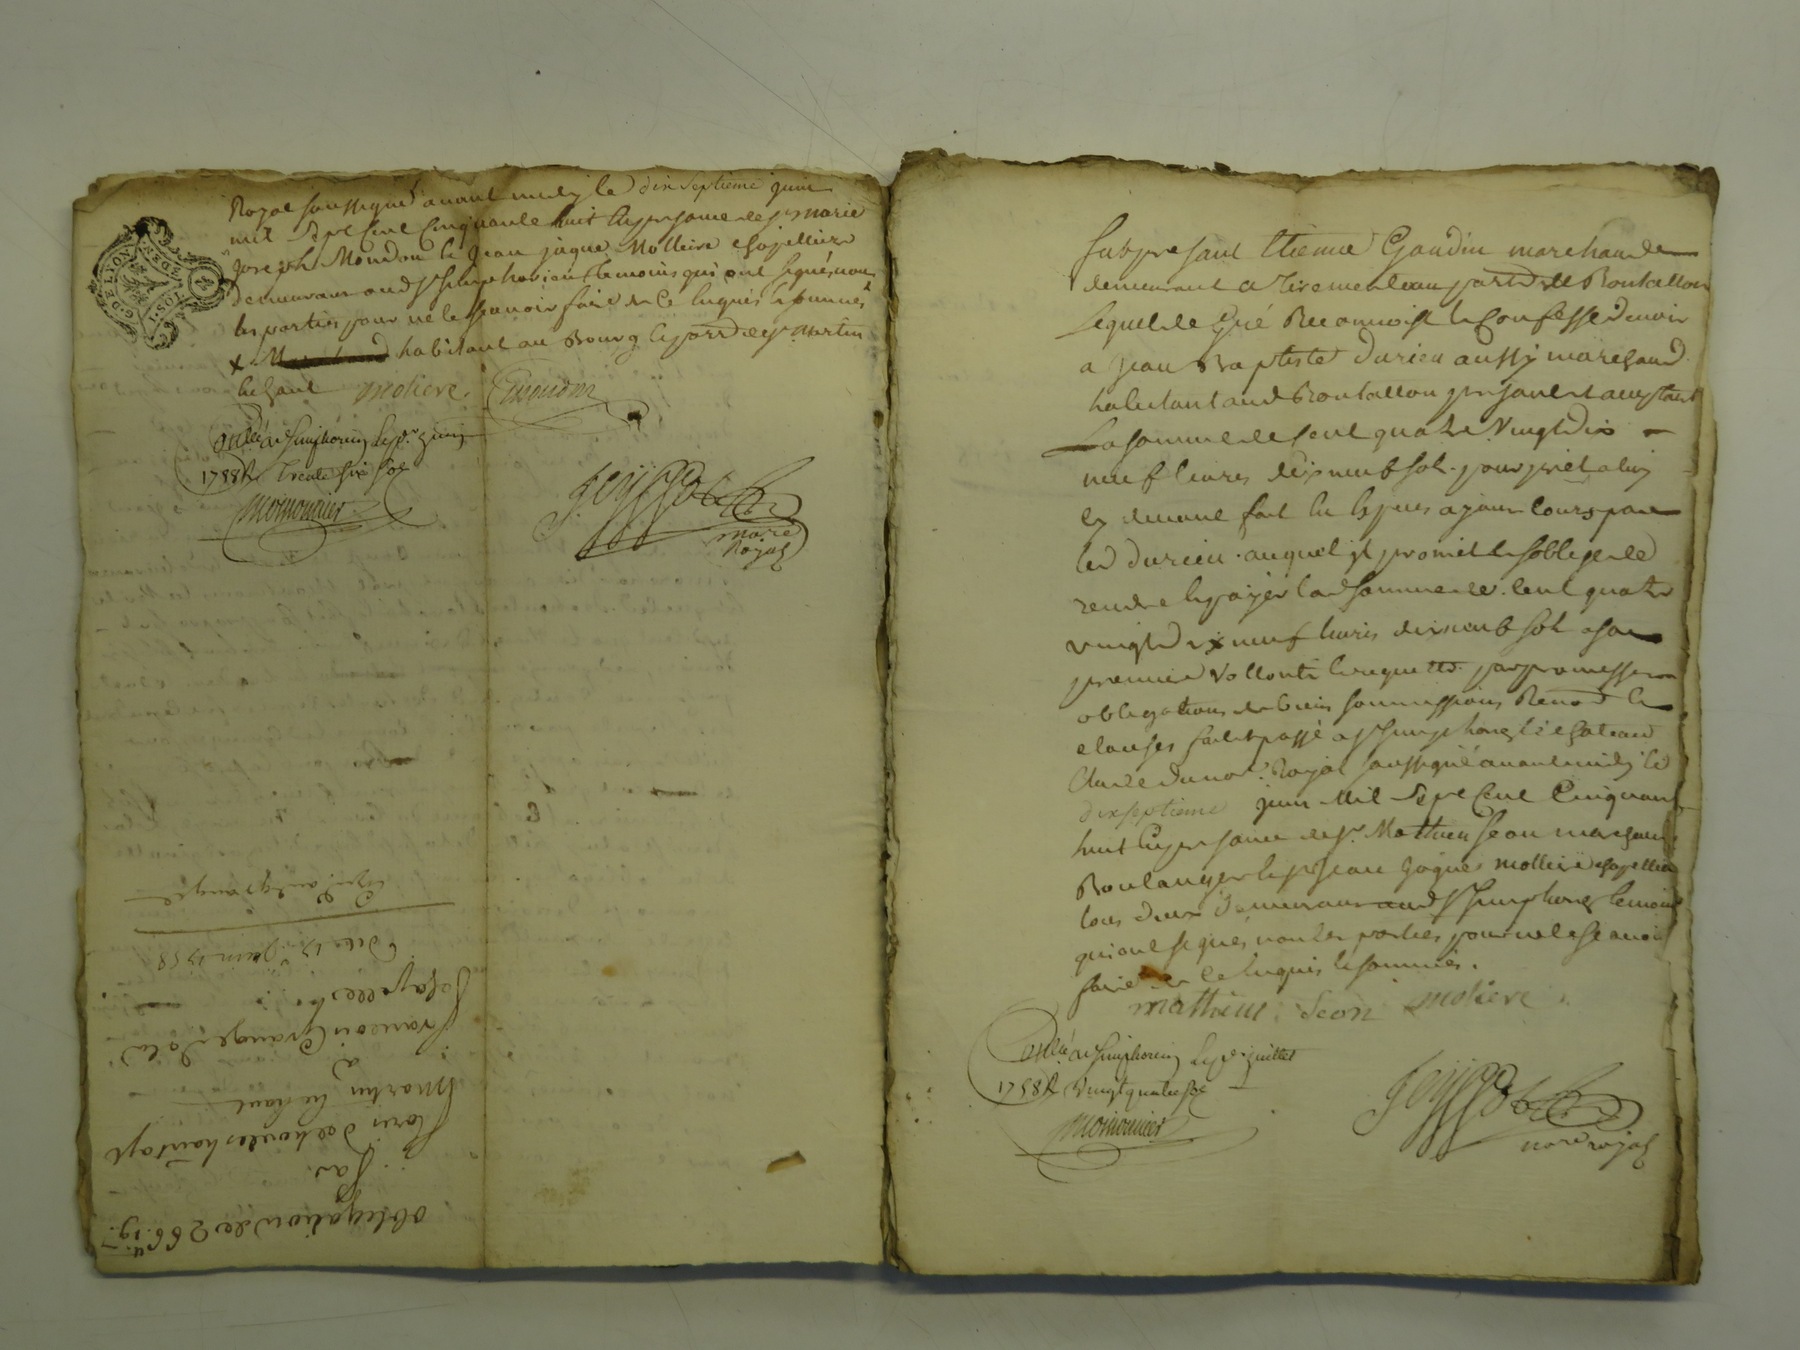 Royal soussigné avant midy le dix septieme juin
mil sept cent cinquante huit en presance de sr marie
joseph Mondon & jean jaque Molliere chapellier
demeurant aud st simphorien temoins qui ont signé, non
les parties pour ne le scavoir faire de ce enquis & sommés
x habitant au Bourg & parr de st martin
lichant moliere. Emondon
Conllé a st simphorien le pr
1758 R trente six sols
Moironnier
nore
Royal
G. DE LYON
obligation de 266 ll 19 s
Par
martin lichant
a
francois Grange
du 17e juin 1758
Fut presant Etienne Gaudin marchand
demeurant a parr de Rontallon
lequel de gré Reconnoist & confesse devoir
a jean Baptiste Durieu aussy marchand
habitant aud Rontallon presant & acceptant
La somme de cent quatre Vingt dix
neuf livres dix neuf sols pour pret a luy
cy devant fait en especes a jour cours par
led Durieu. auquel il promet & s'oblige de
rendre & payer lad somme de cent quatre
vingt dix neuf livres dix neuf sols a sa
premiere Vollonté & requette par promesses
obligations de biens soumissions Renon &
clauses fait & passé a st simphorien le chateau
Etude du not. Royal soussigné avant midy le
dix septieme juin Mil sept Cent Cinquante
huit En presance de sr Mathieu seon marchand
Boulanger & sr jean jaques molliere chapellier
tous deux demeurant aud st simphorien temoins
qui ont signés non les parties pour ne le scavoir
faire de ce enquis & sommés.
mathieu Seon moliere
Conllé a st simphorien le pr juillet
1758 R Vingt quatre sols
Moironnier
nore royal